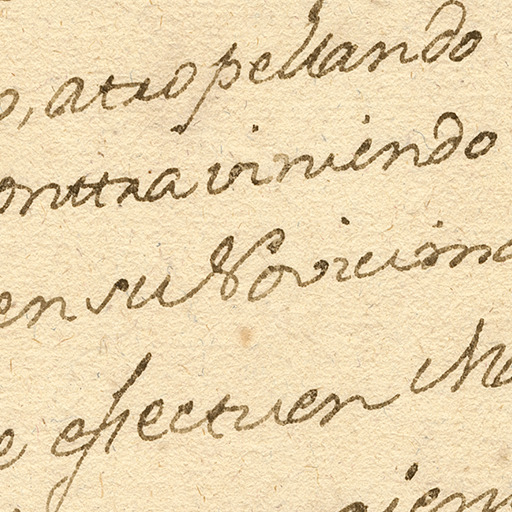 o, atropellando
onttraviniendo
en su Novicima
e efectuen Me